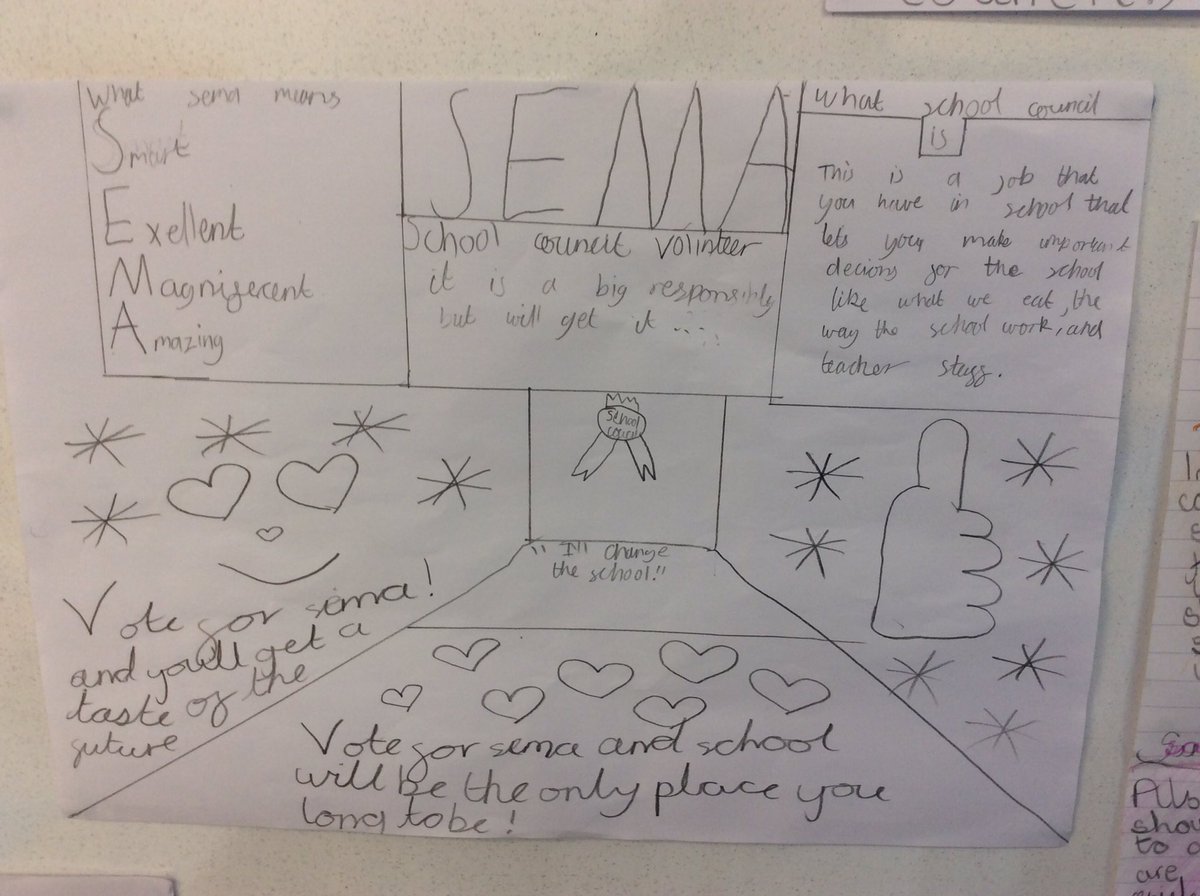 What sema means
Smart
Exellent
Magnifecent
Amazing
SEMA
School council volinteer
it is a big responsibly
but will get it .....
What school council
is
This is a job that
you have in school that
lets you make important
decions for the school
like what we eat, the
way the school work, and
teacher staff.
school
council
"I'll change
the school!"
Vote for sema!
and you'll get a
taste of the
future
Vote for sema and school
will be the only place you
long to be!